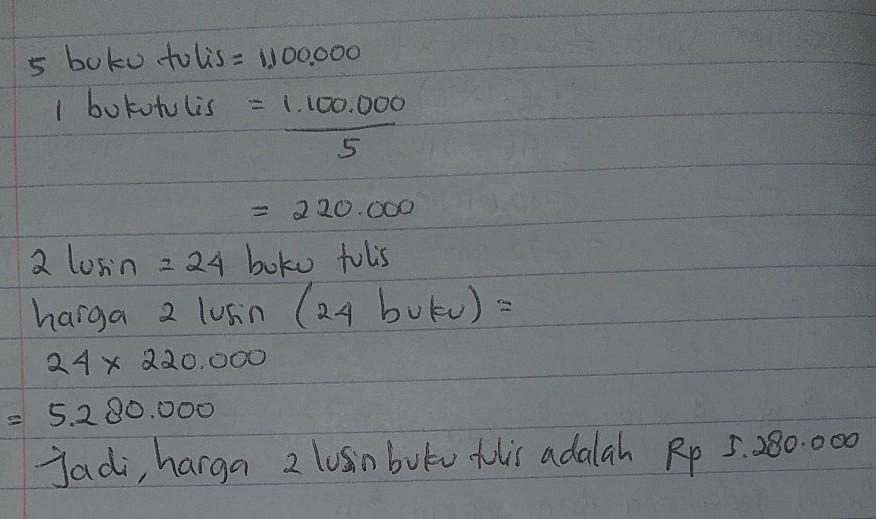 5 buku tulis = 1.100.000
1 bukutulis = 1.100.000
5
= 220.000
2 lusin = 24 buku tulis
harga 2 lusin (24 buku) =
24 x 220.000
= 5.280.000
Jadi, harga 2 lusin buku tulis adalah Rp 5.280.000